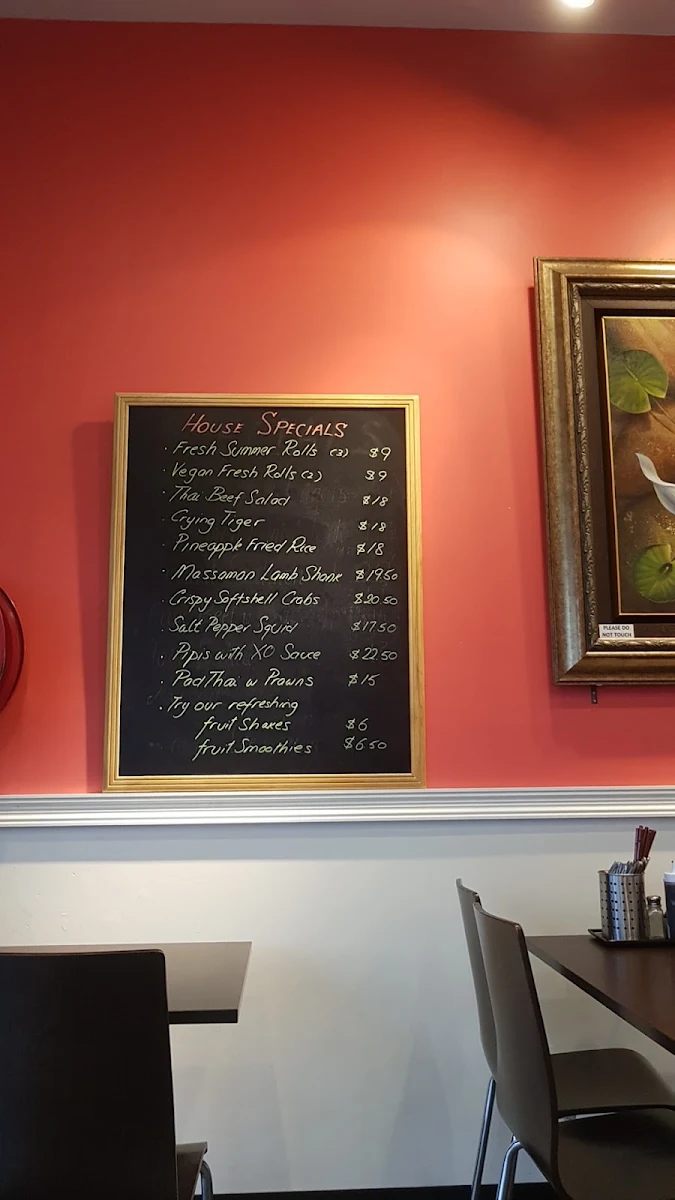 HOUSE SPECIALS
· Fresh Summer Rolls (3) $9
· Vegan Fresh Rolls (2) $9
· Thai Beef Salad $18
· Crying Tiger $18
· Pineapple Fried Rice $18
· Massaman Lamb Shank $19.50
· Crispy Softshell Crabs $20.50
· Salt Pepper Squid $17.50
· Pipis with XO Sauce $22.50
· Pad Thai w Prawns $15
· Try our refreshing
fruit Shakes $6
fruit Smoothies $6.50
PLEASE DO
NOT TOUCH